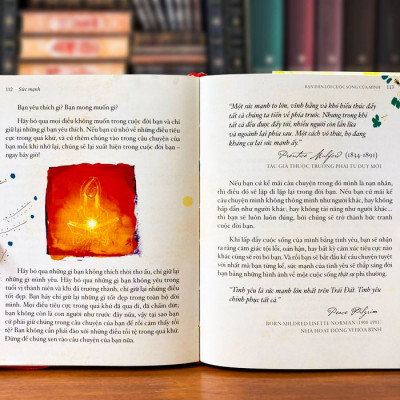 112 Sức mạnh
Bạn yêu thích gì? Bạn mong muốn gì?
Hãy bỏ qua mọi điều không muốn trong cuộc đời bạn và chỉ
giữ lại những gì bạn yêu thích. Nếu bạn cứ nhớ về những điều tiêu
cực trong quá khứ, và cứ thêm chúng vào trong câu chuyện của
bạn mỗi khi nhớ lại, chúng sẽ lại xuất hiện trong cuộc đời bạn –
ngay bây giờ!
Hãy bỏ qua những gì bạn không thích thời thơ ấu, chỉ giữ lại
những gì mình yêu. Hãy bỏ qua những gì bạn không yêu trong
tuổi vị thành niên và khi đã trưởng thành, chỉ giữ lại những điều
tốt đẹp. Bạn hãy chỉ giữ lại những gì tốt đẹp trong toàn bộ đời
mình. Mọi điều tiêu cực trong quá khứ đã qua đi, đã chấm dứt;
bạn không còn là con người như trước đây nữa, vậy tại sao bạn
cứ phải giữ chúng trong câu chuyện của bạn để rồi cảm thấy tồi
tệ? Bạn không phải xới tung những điều tồi tệ trong quá khứ.
Đừng để chúng xen vào câu chuyện của bạn nữa.
BẠN DẪN LỐI CUỘC SỐNG CỦA MÌNH 113
"Một sức mạnh to lớn, vĩnh hằng và khó hiểu thúc đẩy
tất cả chúng ta tiến về phía trước. Nhưng trong khi
tất cả đều được đẩy tới, nhiều người còn lần lữa
và ngoảnh lại phía sau. Một cách vô thức, họ đang
kháng cự lại sức mạnh ấy."
Prentice Mulford (1834-1891)
TÁC GIẢ THUỘC TRƯỜNG PHÁI TƯ DUY MỚI
Nếu bạn cứ kể mãi câu chuyện trong đó mình là nạn nhân,
thì điều đó sẽ lặp đi lặp lại trong đời bạn. Nếu bạn cứ kể mãi
câu chuyện mình không thông minh như người khác, hay không
hấp dẫn như người khác, hay không tài năng như người khác...
thì bạn sẽ luôn luôn đúng, bởi chúng sẽ trở thành bức tranh
cuộc đời bạn.
Khi lấp đầy cuộc sống của mình bằng tình yêu, bạn sẽ nhận
ra rằng cảm giác tội lỗi, oán hận, hay bất kỳ cảm xúc tiêu cực nào
khác cũng sẽ rời bỏ bạn. Và rồi bạn sẽ bắt đầu kể câu chuyện tuyệt
vời nhất mà bạn từng kể, sức mạnh của tình yêu sẽ thắp sáng đời
bạn bằng những hình ảnh về một cuộc sống thật sự phi thường.
"Tình yêu là sức mạnh lớn nhất trên Trái Đất. Tình yêu
chinh phục tất cả."
Peace Pilgrim
BORN MILDRED LISETTE NORMAN (1908-1981)
NHÀ HOẠT ĐỘNG VÌ HÒA BÌNH